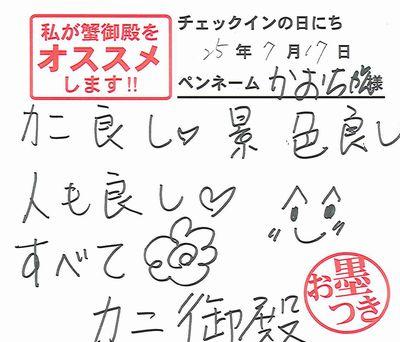 私が蟹御殿を
オススメ
します!!
チェックインの日にち
25年7月17日
ペンネーム かおち 様
カニ良し♡ 景色良し
人も良し♡
すべて
カニ御殿
お墨つき